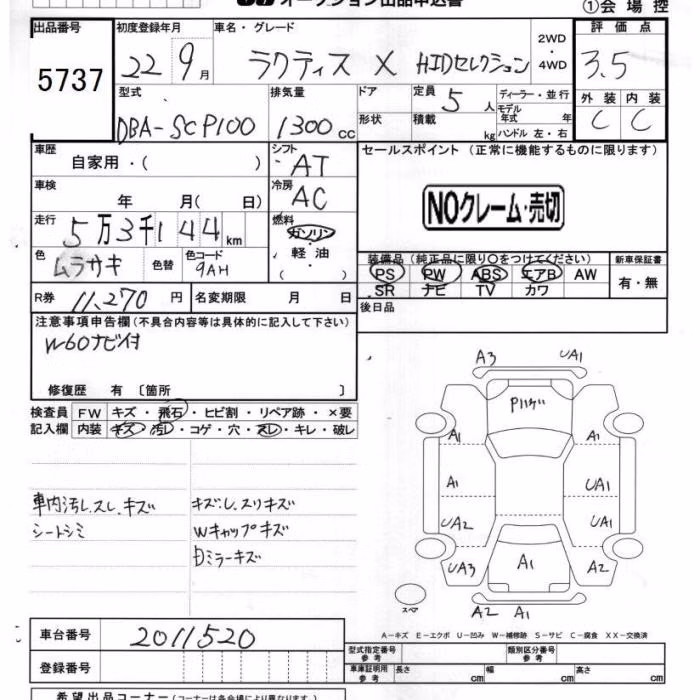 オークション出品申込書
①会場控
出品番号 初度登録年月 車名・グレード 2WD・4WD 評価点
5737 22 9月 ラクティス X HIDセレクション 3.5
型式 排気量 ドア 定員 5人 ディーラー・並行 外装 内装
DBA-SCP100 1300cc 形状 積載 kg モデル年式 年 ハンドル 左・右 C C
車歴 自家用・( ) シフト AT セールスポイント (正常に機能するものに限ります)
車検 年 月( 日) 冷房 AC
NOクレーム・売切
走行 5万3千144km 燃料 ガソリン・軽油・( )
色 ムラサキ 色替 色コード 9AH
装備品(純正品に限り○をつけてください) 新車保証書
PS PW ABS エアB AW 有・無
SR ナビ TV カワ
R券 11,270円 名変期限 月 日 後日品
注意事項申告欄(不具合内容等は具体的に記入して下さい)
W60ナビ付
修復歴 有 〔箇所 〕
検査員 FW キズ・飛石・ヒビ割・リペア跡・×要
記入欄 内装 キズ・汚レ・コゲ・穴・スレ・キレ・破レ
車内汚レ.スレ.キズ キズ.し.スリキズ
シートシミ Wキャップキズ
ミラーキズ
A3 UA1
A1 A1
A1 UA1
UA2 UA1
UA3 A1 A2
スペア A2 A1
A-キズ E-エクボ U-凹み W-補修跡 S-サビ C-腐食 XX-交換済
車台番号 2011520
型式指定番号 参考 類別区分番号 参考
登録番号
車庫証明用 参考 長さ cm 幅 cm 高さ cm
希望出品コーナー(コーナーは各会場により異なります)